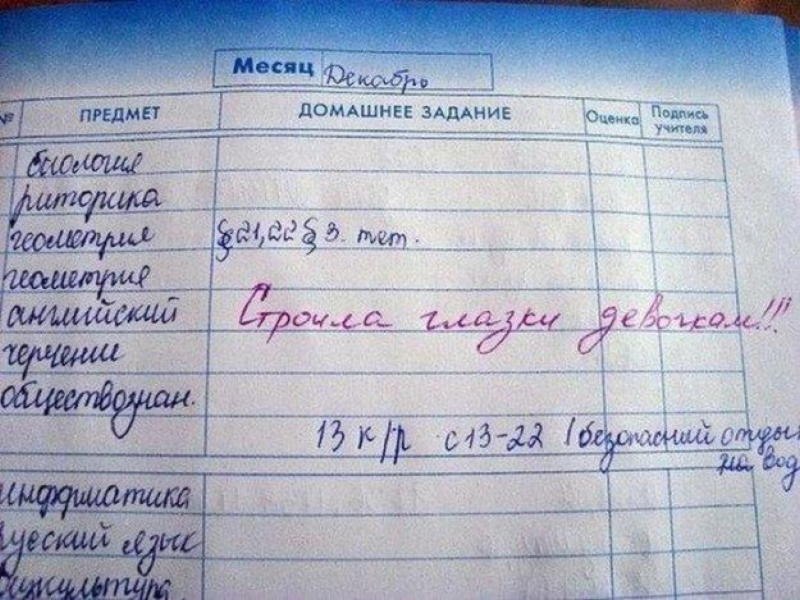 Месяц Декабрь
№ ПРЕДМЕТ ДОМАШНЕЕ ЗАДАНИЕ Оценка Подпись учителя
биология
риторика
геометрия § 21, 22 § 3. тет.
геометрия
английский Строила глазки девочкам!!!
черчение
обществознан.
13 к/р с 13-22 безопасный отдых
на вод
информатика
русский язык
физкультура